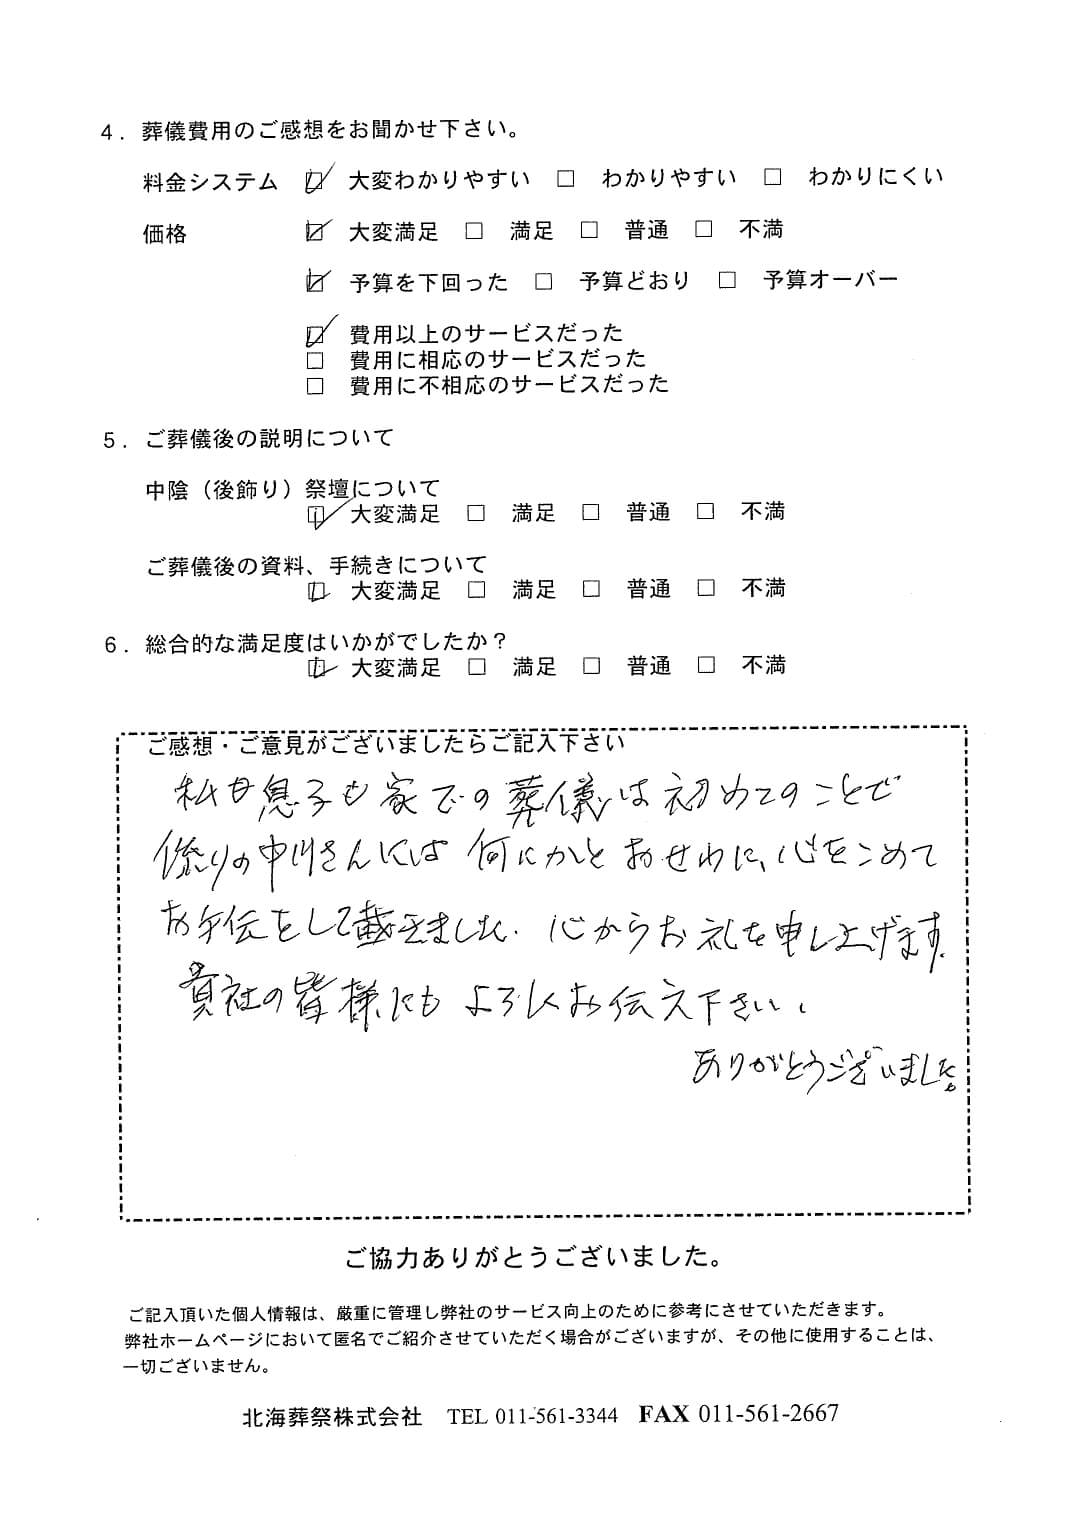 4．葬儀費用のご感想をお聞かせ下さい。
料金システム ☑ 大変わかりやすい □ わかりやすい □ わかりにくい
価格 ☑ 大変満足 □ 満足 □ 普通 □ 不満
☑ 予算を下回った □ 予算どおり □ 予算オーバー
☑ 費用以上のサービスだった
□ 費用に相応のサービスだった
□ 費用に不相応のサービスだった
5．ご葬儀後の説明について
中陰（後飾り）祭壇について
☑ 大変満足 □ 満足 □ 普通 □ 不満
ご葬儀後の資料、手続きについて
☑ 大変満足 □ 満足 □ 普通 □ 不満
6．総合的な満足度はいかがでしたか？
☑ 大変満足 □ 満足 □ 普通 □ 不満
ご感想・ご意見がございましたらご記入下さい
私も息子も家での葬儀は初めてのことで
りの中川さんには何にかとおせわに、心をこめて
お手伝をして戴きました。心からお礼を申し上げます。
貴社の皆様にもよろしくお伝え下さい。
ありがとうございました。
ご協力ありがとうございました。
ご記入頂いた個人情報は、厳重に管理し弊社のサービス向上のために参考にさせていただきます。
弊社ホームページにおいて匿名でご紹介させていただく場合がございますが、その他に使用することは、
一切ございません。
北海葬祭株式会社 TEL 011-561-3344 FAX 011-561-2667